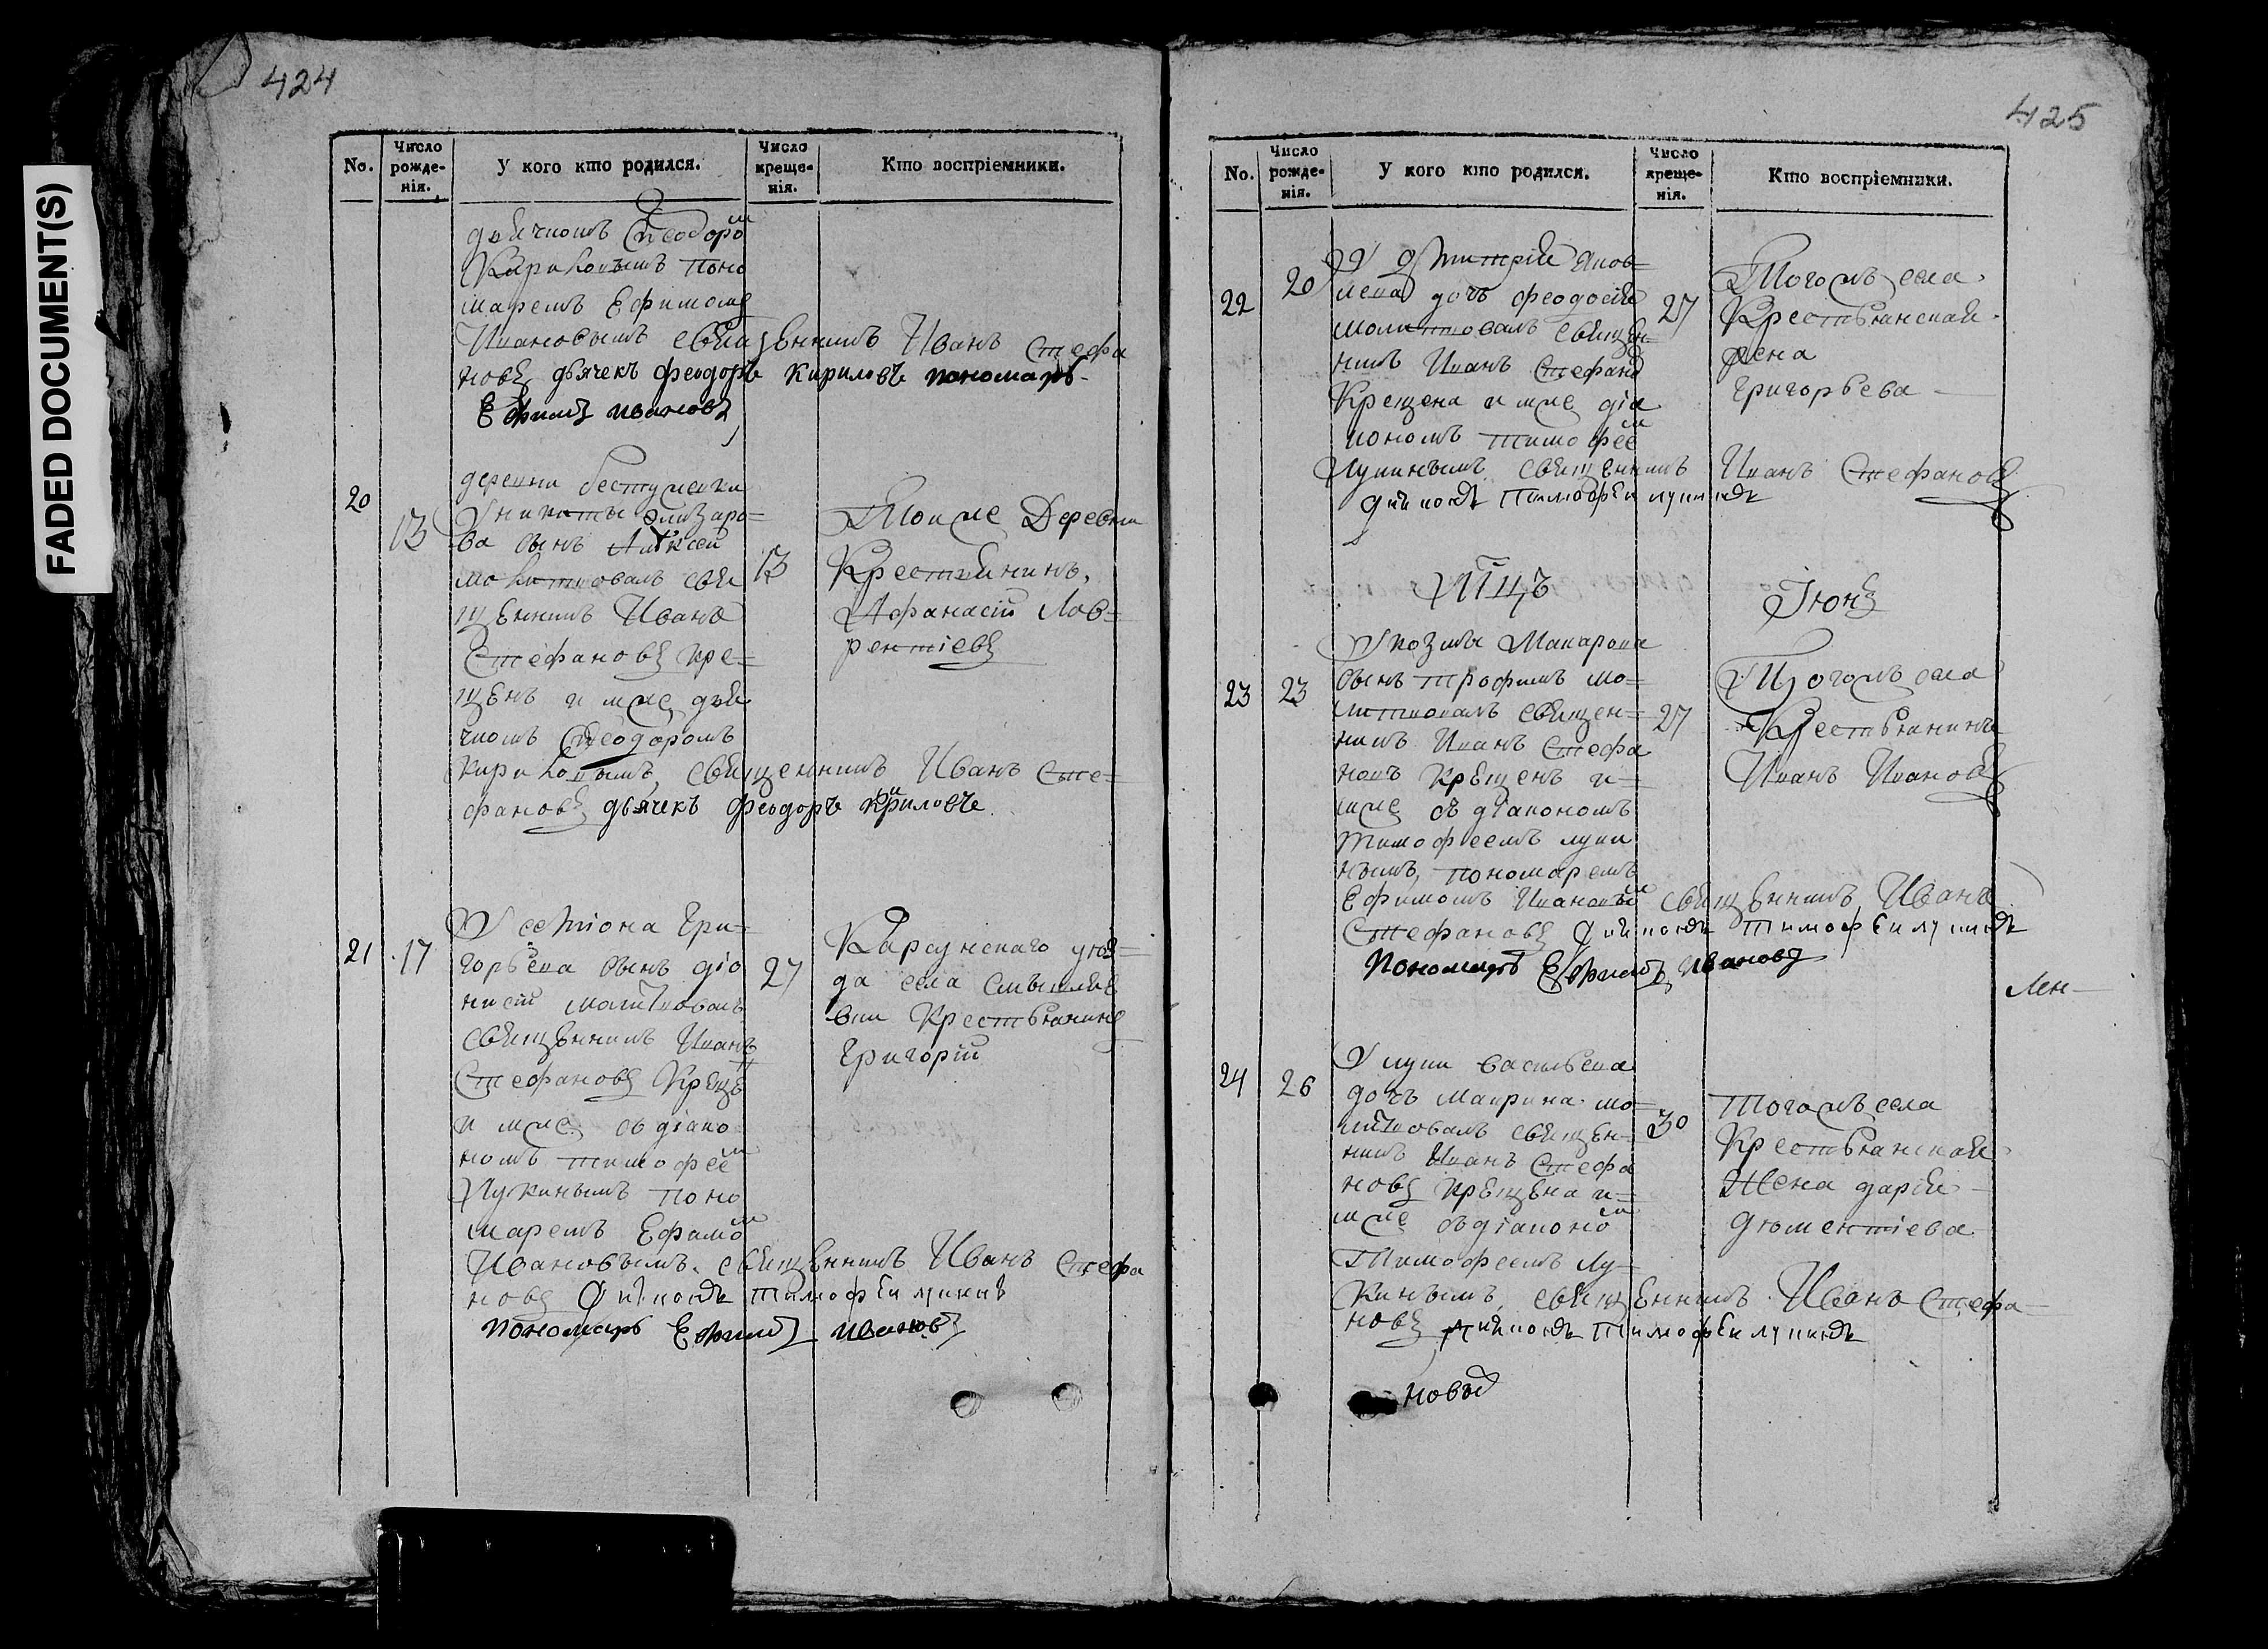 FADED DOCUMENT(S)
424
No.
Число рожденія.
У кого кто родился.
Число крещенія.
Кто воспріемники.
дьячкомъ Феодоро
Кириловымъ поно
маремъ Ефимомъ
Ивановымъ священникъ Иванъ Стефа
новъ дьячекъ феодоръ кириловъ пономарь
Ефимъ ивановъ
20
13
деревни
Уникиты Елизаро=
ва сынъ Алексей
молитвовалъ свя
щенникъ Иванъ
Стефановъ кре=
щенъ имъ же дья
чкомъ Феодоромъ
кириловымъ, священникъ Иванъ Сте=
фановъ дьячекъ феодоръ кириловъ
13
Тоя же Деревни
Крестьянинъ,
Афанасій Лав=
рентіевъ
21
17
У семіона Гри=
горьева сынъ діо
нисій молитвовалъ
священникъ Иванъ
Стефановъ Крещѐ
и мже съ діако
номъ тимофее
Лукинымъ поно
маремъ Ефимо
Ивановымъ. священникъ Иванъ Стефа
новъ Диаконъ Тимофеи лукинъ
пономарь Ефимъ ивановъ
27
Карсунскаго уѣз=
да села
Крестьянинъ
Григорій
425
No.
Число рожденія.
У кого кто родился.
Число крещенія.
Кто воспріемники.
22
20
У дмитрія Яков=
лева дочь феодосія
молитвовалъ священ=
никъ Иванъ Стефано
Крещена имже діа
кономъ тимофее
Лукинымъ священникъ Иванъ Стефановъ
диаконъ Тимофеи лукинъ
27
Тогожъ села
Крестьянская
жена
Григорьева
Мцъ Іюнь
23
23
Укозмы Макарова
сынъ трофимъ мо=
литвовалъ священ=
никъ Иванъ Стефа
новъ крещенъ и=
мже съ діакономъ
Тимофеемъ луки
нымъ, пономаремъ
Ефимомъ Ивановы священникъ Иванъ
Стефановъ Диаконъ Тимофеи лукинъ
Пономарь Ефимъ, ивановъ
27
Тогожъ села
Крестьянинъ
Иванъ Ивановъ
24
26
У луки васильева
дочь Маврина мо=
литвовалъ священ=
никъ Иванъ Стефа
новъ крещена и=
мже съ діаконо
Тимофеемъ Лу=
кинымъ, священникъ Иванъ Стефа=
новъ диаконъ Тимофеи лукинъ
30
Тогожъ села
Крестьянская
Жена дарія
Дѣментіева
новъ